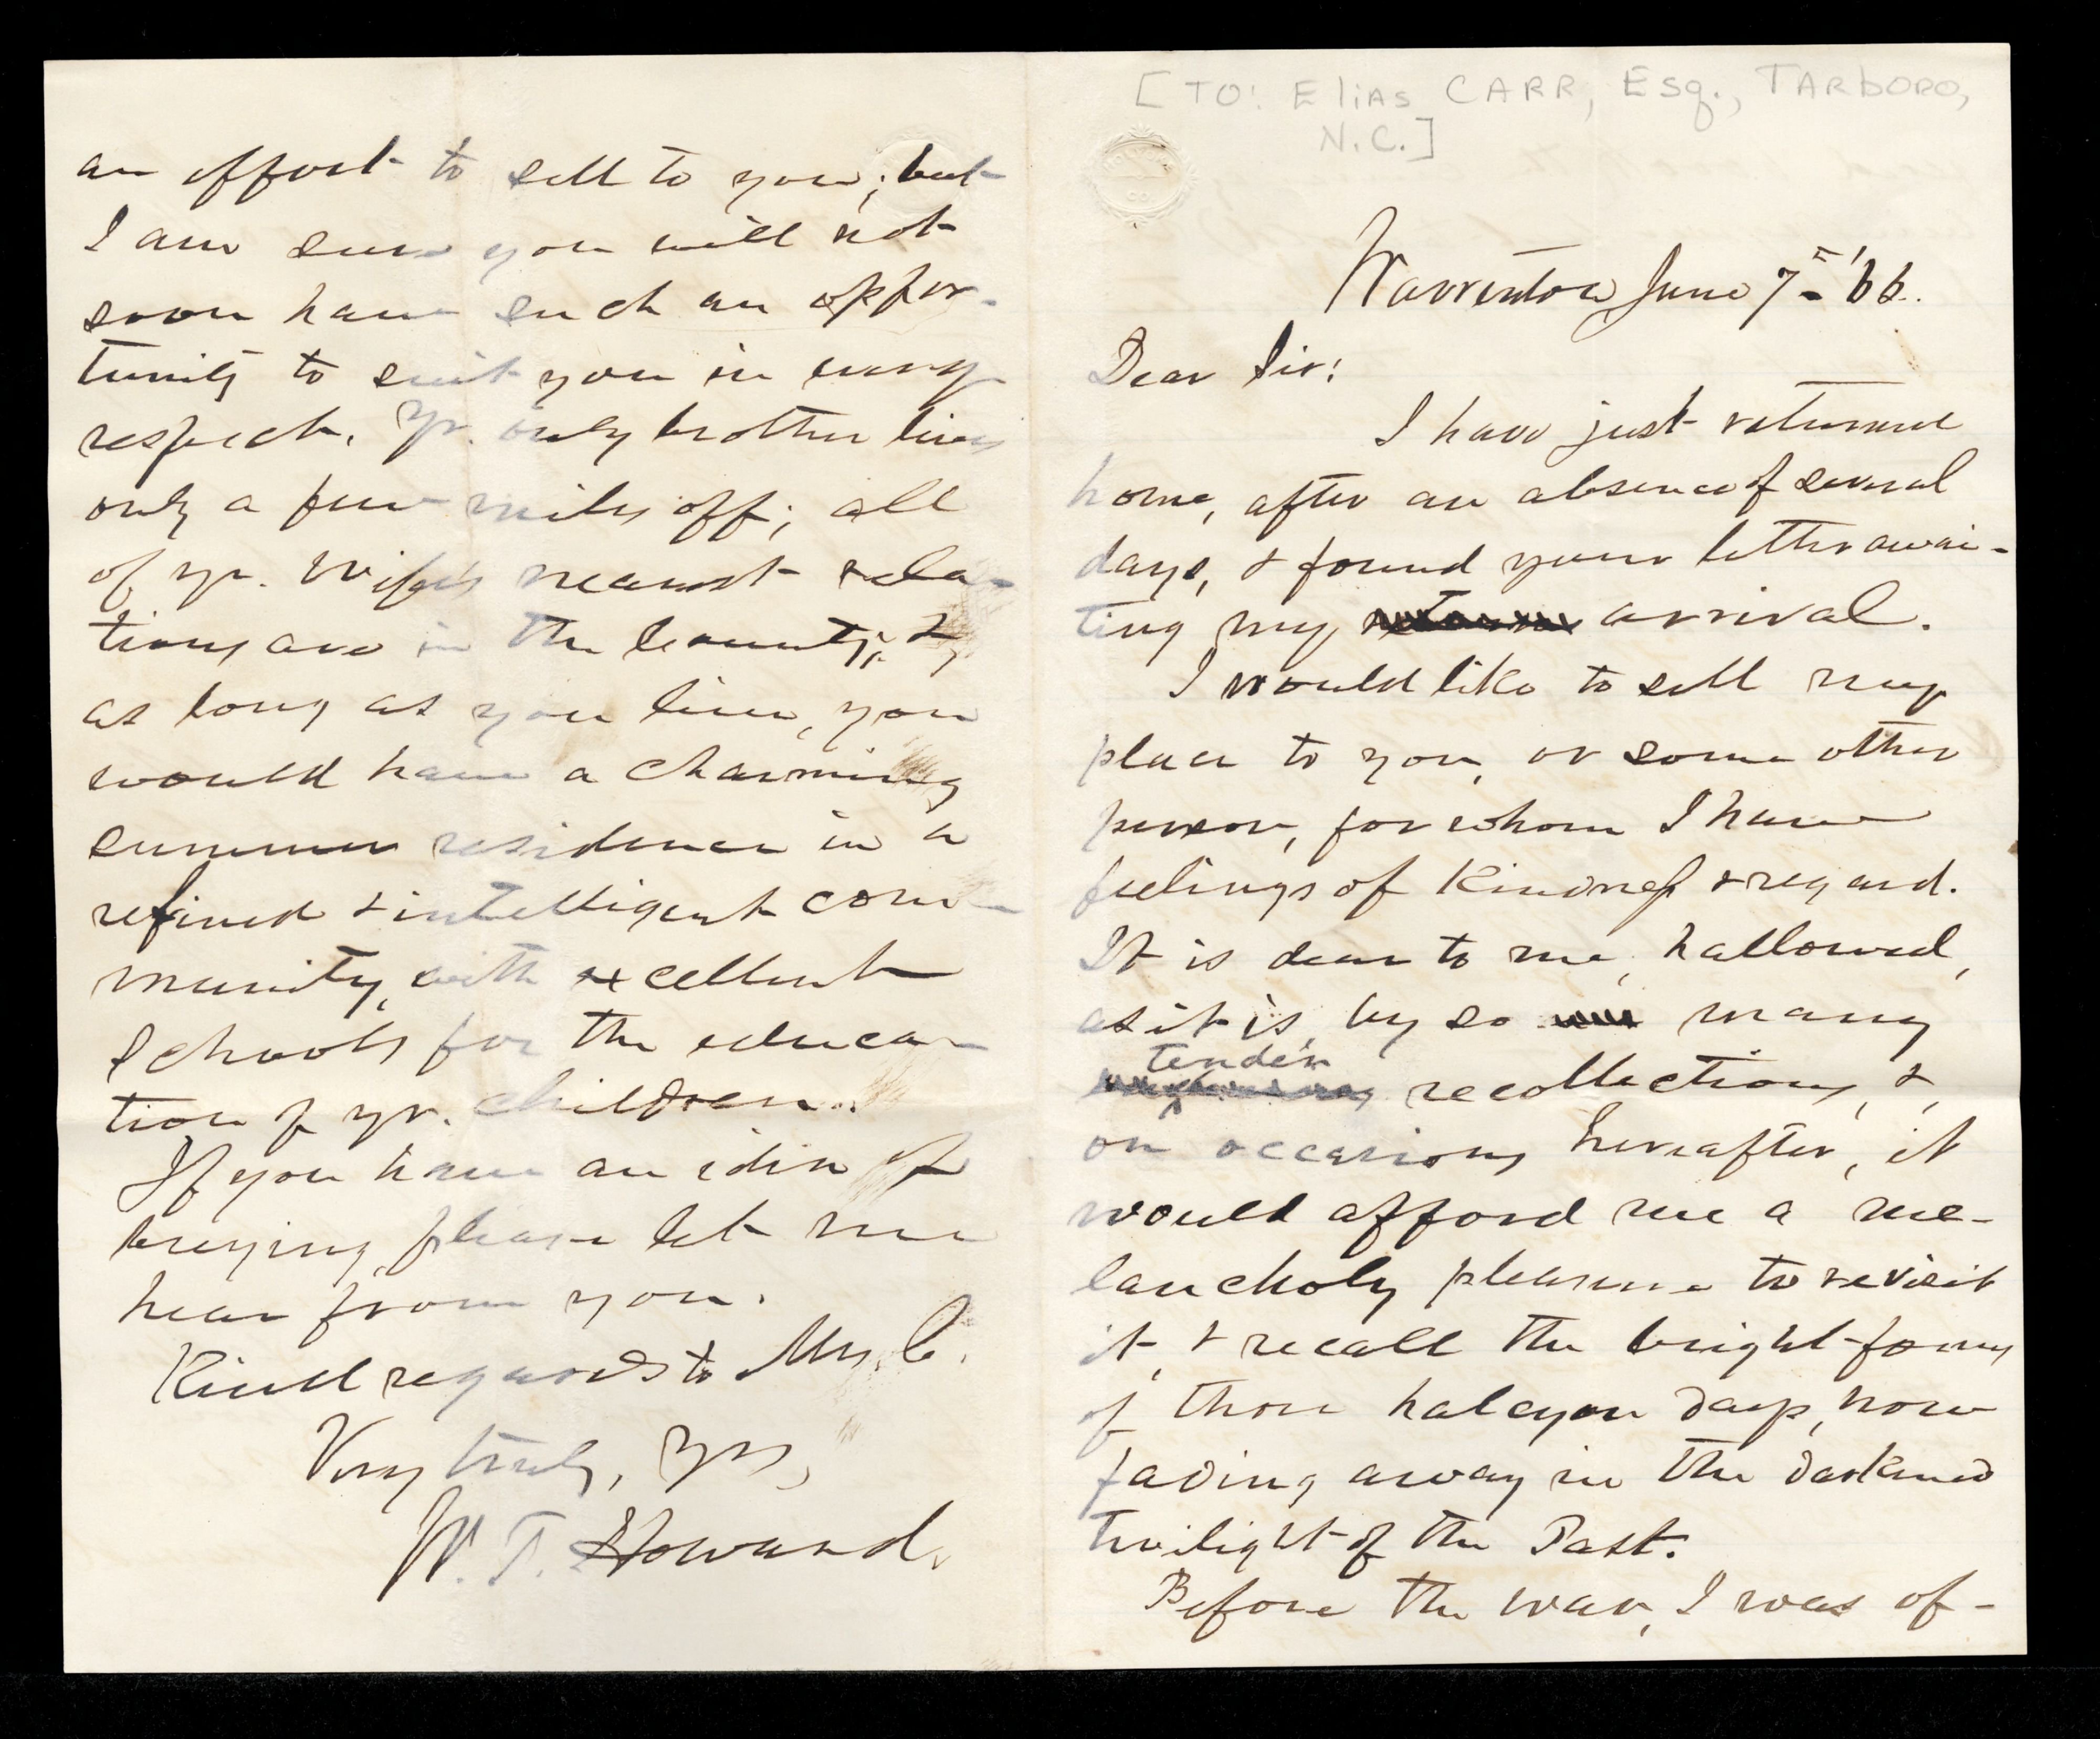 [TO: Elias CARR, Esq., TARboro,
N.C.]
Warrenton, June 7th '66.
Dear Sir:
I have just returned
home, after an absence of several
days, & found your letter awai-
ting my arrival.
I would like to sell my
place to you, or some other
person, for whom I have
feelings of kindness & regard.
It is dear to me, hallowed,
as it is, by so many
tender
recollections, &,
on occasions hereafter, it
would afford me a me-
lancholy pleasure to revisit
it, & recall the bright forms
of those halcyon days, now
fading away in the darkened
twilight of the Past.
Before the war, I was of-
an effort to sell to you; but
I am sure you will not
soon have such an oppor-
tunity to suit you in every
respect. Yr. only brother lives
only a few miles off; all
of yr. Wife's nearest rela-
tions are in the County; &,
as long as you live, you
would have a charming
summer residence in a
refined & intelligent com-
munity, with excellent
schools for the educa-
tion of yr. children.
If you have an idea of
buying, please let me
hear from you.
Kind regards to Mrs. C.
Very truly, Yrs,
W. T. Howard.